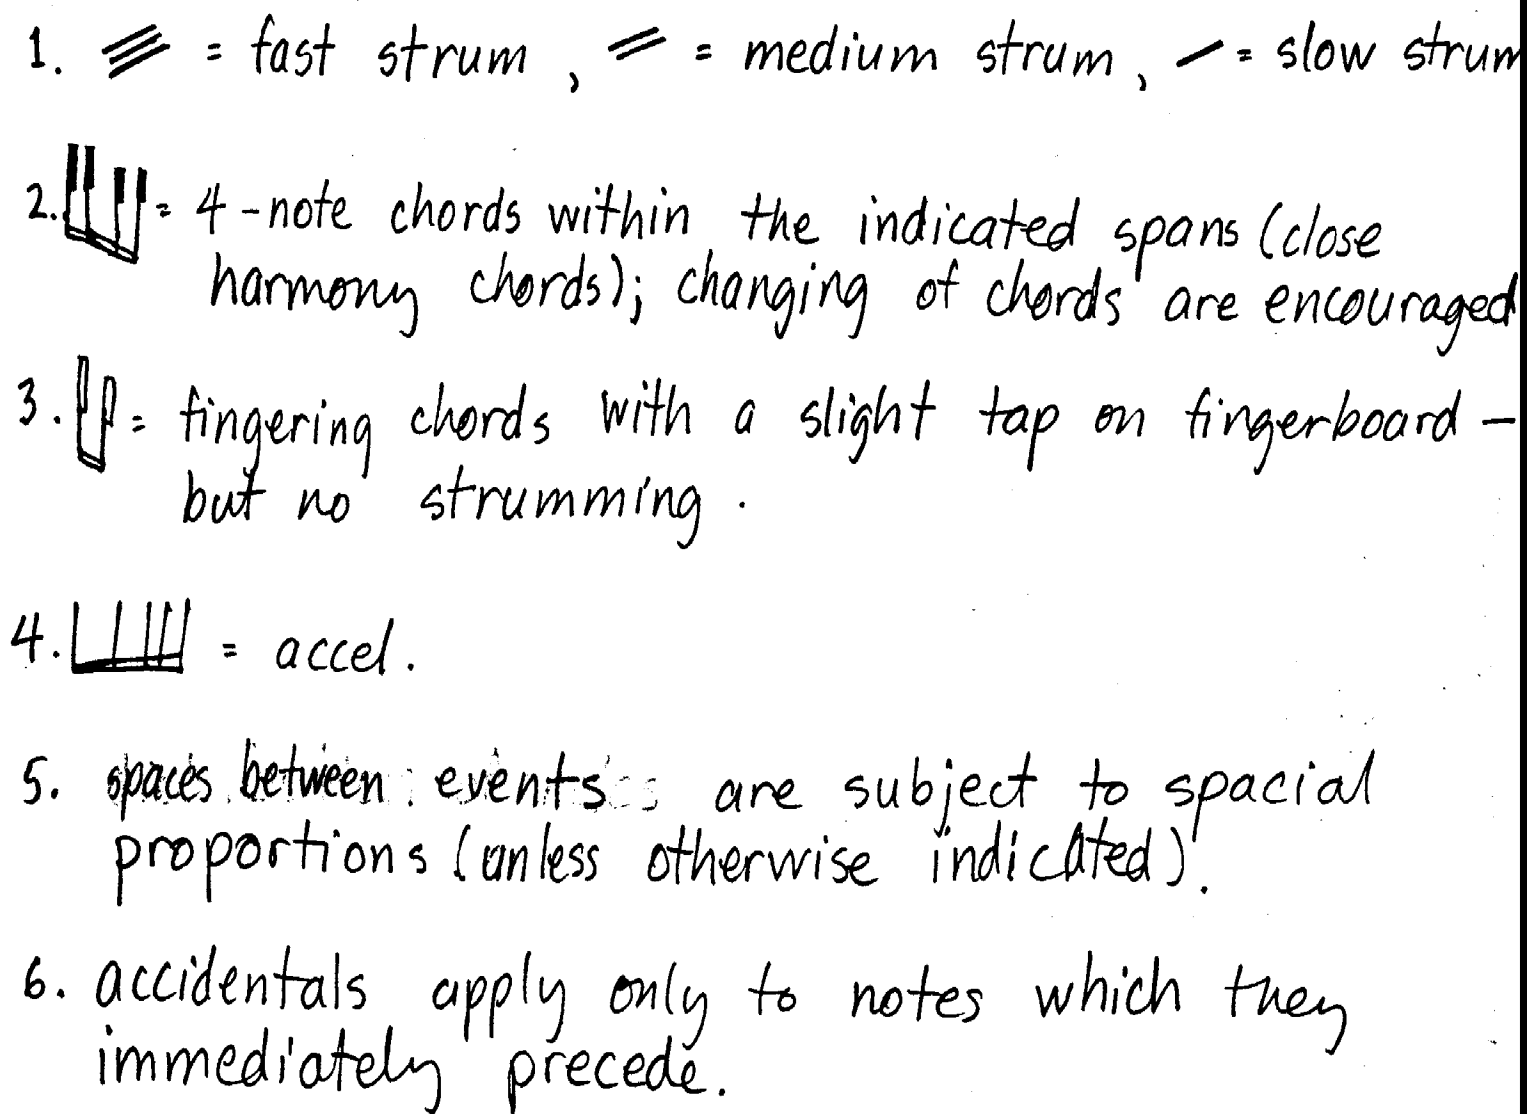 1. = fast strum, = medium strum, = slow strum
2. = 4-note chords within the indicated spans (close
harmony chords); changing of chords are encouraged
3. = fingering chords with a slight tap on fingerboard -
but no strumming.
4. = accel.
5. spaces between events are subject to spacial
proportions (unless otherwise indicated).
6. accidentals apply only to notes which they
immediately precede.